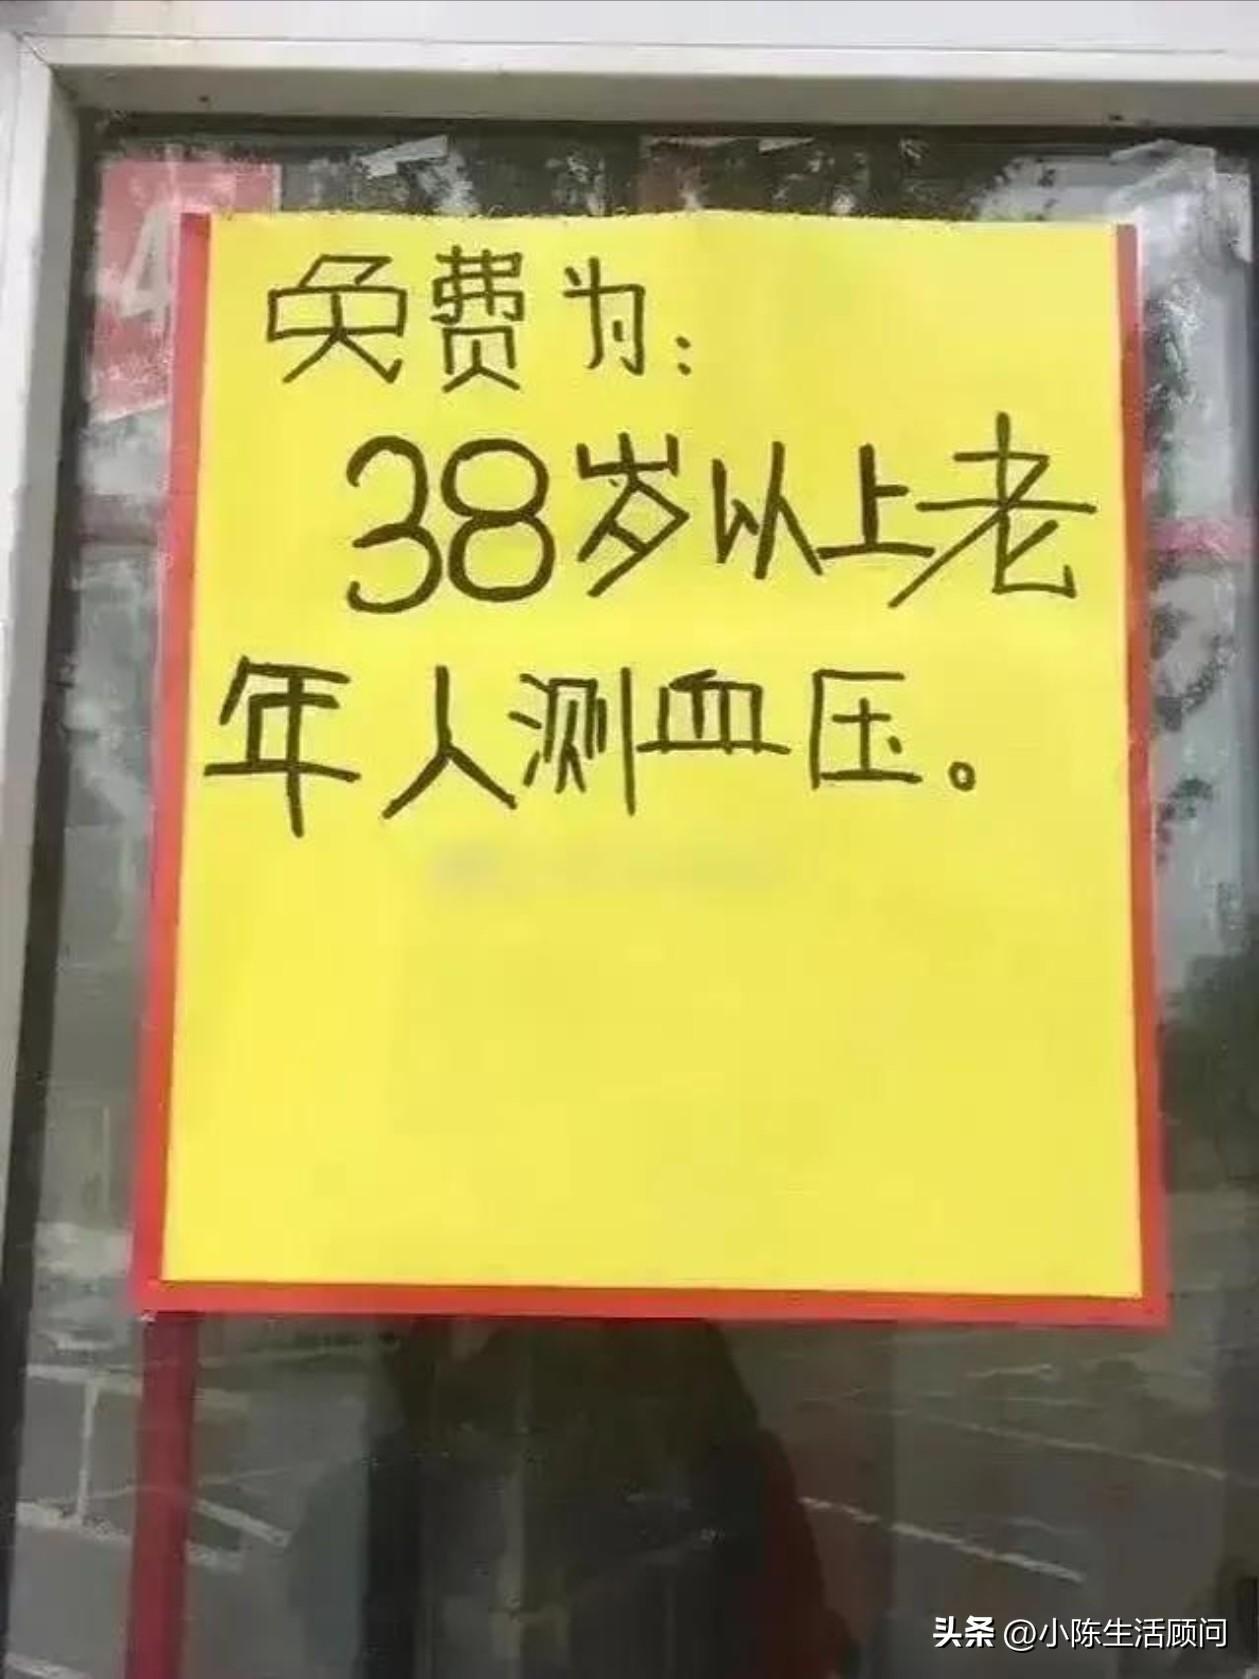 免费为:
38岁以上老
年人测血压。
4
头条 @小陈生活顾问